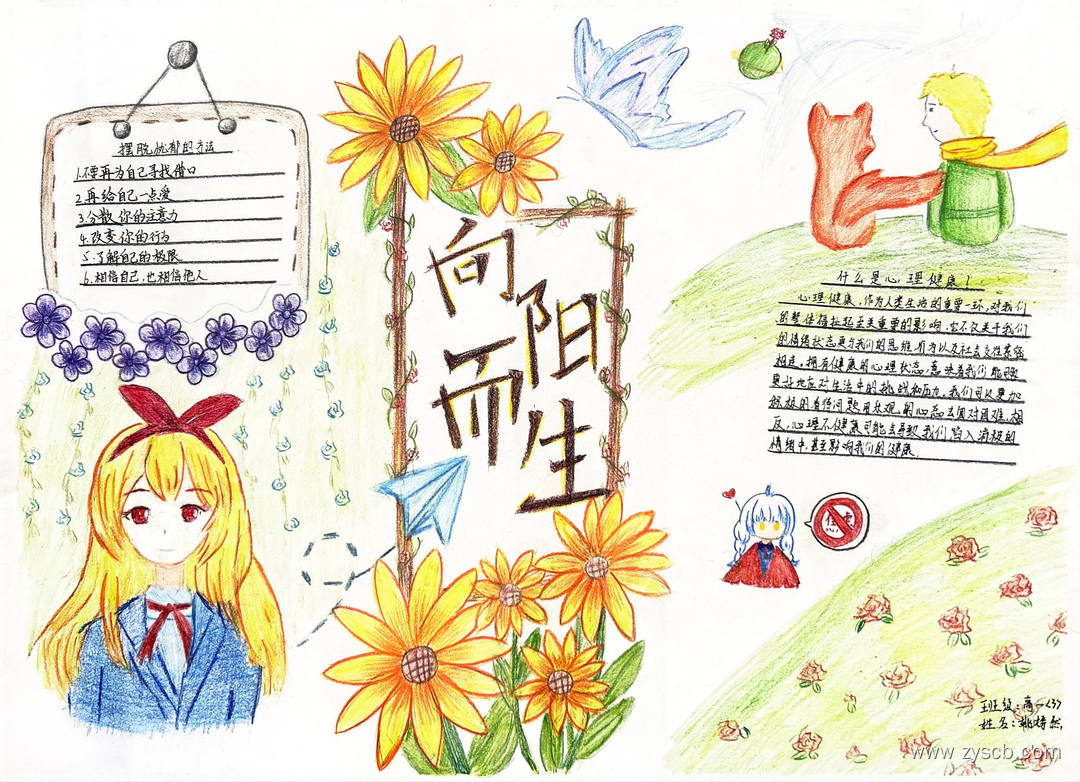 摆脱忧郁的方法
1.不要再为自己寻找借口
2.再给自己一点爱
3.分散你的注意力
4.改变你的行为
5.了解自己的极限
6.相信自己,也相信他人
向阳
而生
什么是心理健康?
心理健康,作为人类生活的重要一环,对我们
的整体福祉起至关重要的影响,它不仅关乎我们
的情绪状态更与我们的思维、行为以及社会交往紧密
相连。拥有健康的心理状态,意味着我们能够
更好地应对生活中的挑战和压力,我们可以更加
积极的看待问题,用乐观的心态去面对困难,相
反,心理不健康可能会导致我们陷入消极的
情绪中,甚至影响我们的健康.
焦虑
班级:高一(3)
姓名:
www.zyscb.com